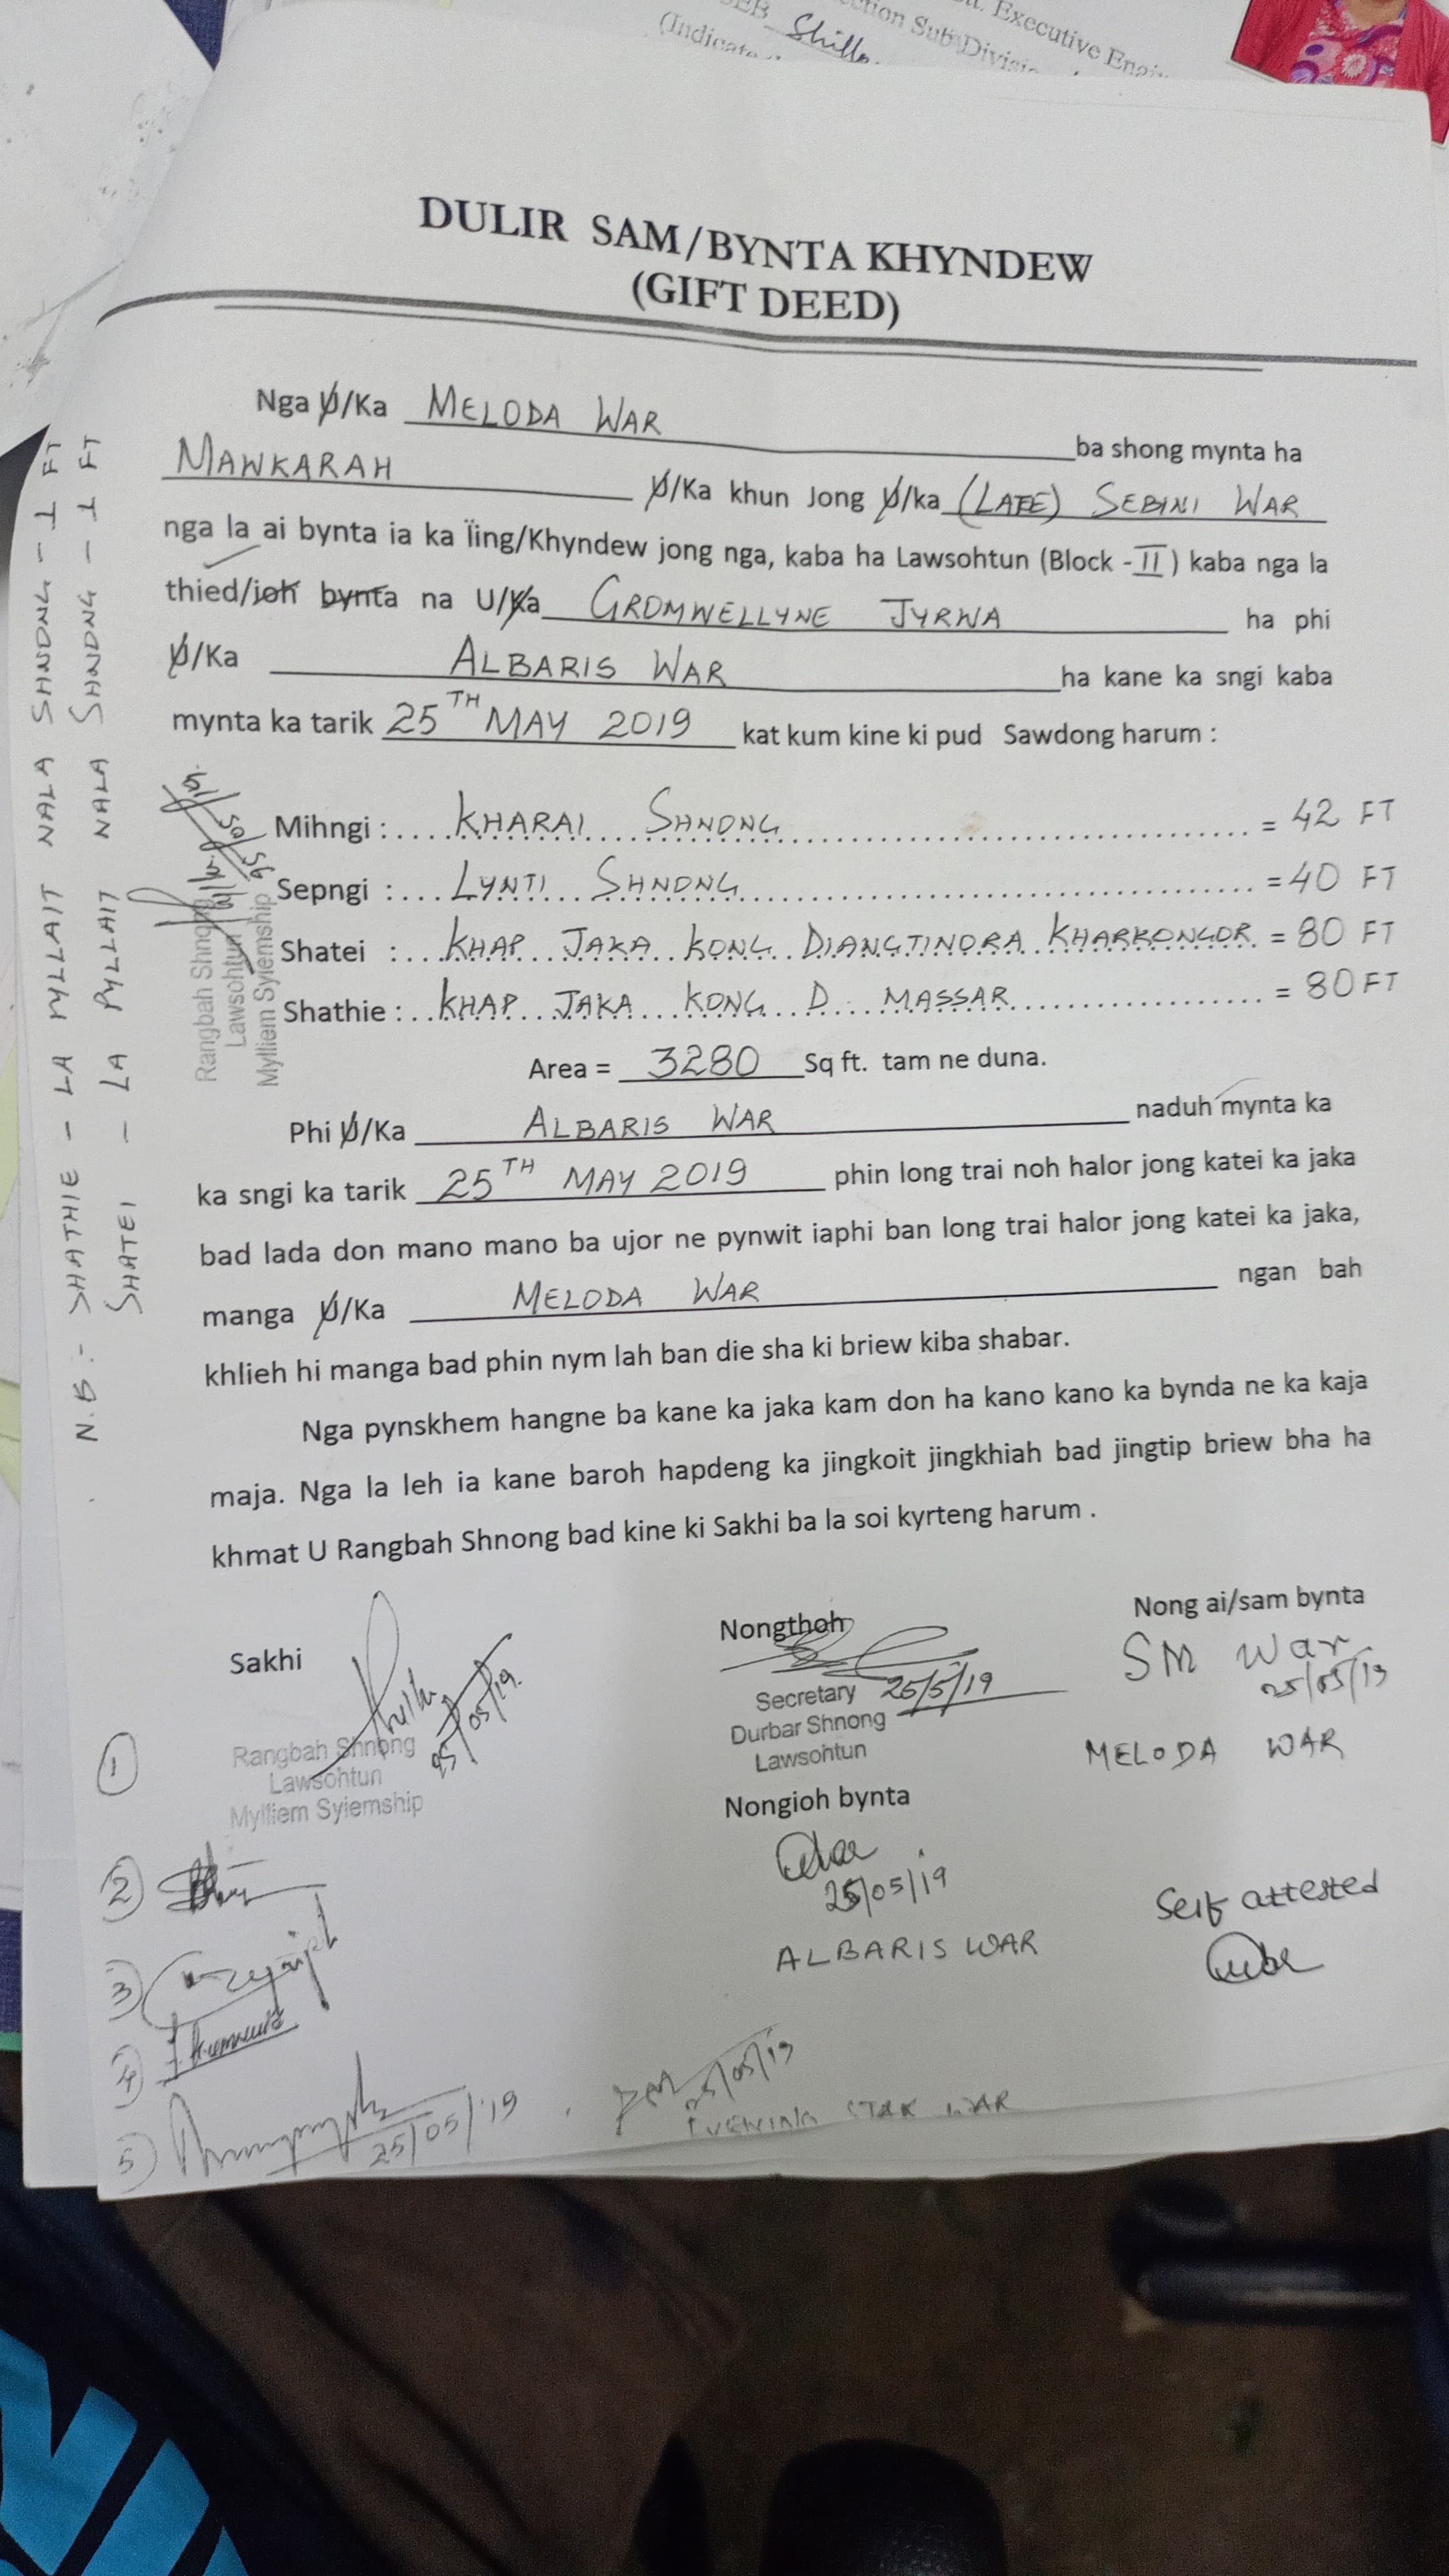 Executive
ction Sub Divisi
(Indicate
DULIR SAM/BYNTA KHYNDEW
(GIFT DEED)
Nga U/Ka MELODA WAR ba shong mynta ha
MAWKARAH U/Ka khun Jong U/ka (LATE) SEBINI WAR
nga la ai bynta ia ka ïing/Khyndew jong nga, kaba ha Lawsohtun (Block - II) kaba nga la
thied/ioh bynta na U/Ka GROMWELLYNE JYRWA ha phi
U/Ka ALBARIS WAR ha kane ka sngi kaba
mynta ka tarik 25TH MAY 2019 kat kum kine ki pud Sawdong harum :
Mihngi : KHARAI SHNONG = 42 FT
Sepngi : LYNTI SHNONG = 40 FT
Shatei : KHAP JAKA KONG DIANGTINORA KHARKONGOR = 80 FT
Shathie : KHAP JAKA KONG D. MASSAR = 80 FT
Area = 3280 Sq ft. tam ne duna.
Phi U/Ka ALBARIS WAR naduh mynta ka
ka sngi ka tarik 25TH MAY 2019 phin long trai noh halor jong katei ka jaka
bad lada don mano mano ba ujor ne pynwit iaphi ban long trai halor jong katei ka jaka,
manga U/Ka MELODA WAR ngan bah
khlieh hi manga bad phin nym lah ban die sha ki briew kiba shabar.
Nga pynskhem hangne ba kane ka jaka kam don ha kano kano ka bynda ne ka kaja
maja. Nga la leh ia kane baroh hapdeng ka jingkoit jingkhiah bad jingtip briew bha ha
khmat U Rangbah Shnong bad kine ki Sakhi ba la soi kyrteng harum .
N.B :- SHATHIE - LA PYLLAIT NALA SHNONG - 1 FT
SHATEI - LA PYLLAIT NALA SHNONG - 1 FT
Rangbah Shnong
Lawsohtun
Mylliem Syiemship
Sakhi
25/05/19
1
Rangbah Shnong
Lawsohtun
Mylliem Syiemship
2
3
4
5
25/05/19
Nongthoh
Secretary 25/5/19
Durbar Shnong
Lawsohtun
Nong ai/sam bynta
SM War
25/05/19
MELODA WAR
Nongioh bynta
25/05/19
ALBARIS WAR
Self attested
25/05/19
STAR WAR